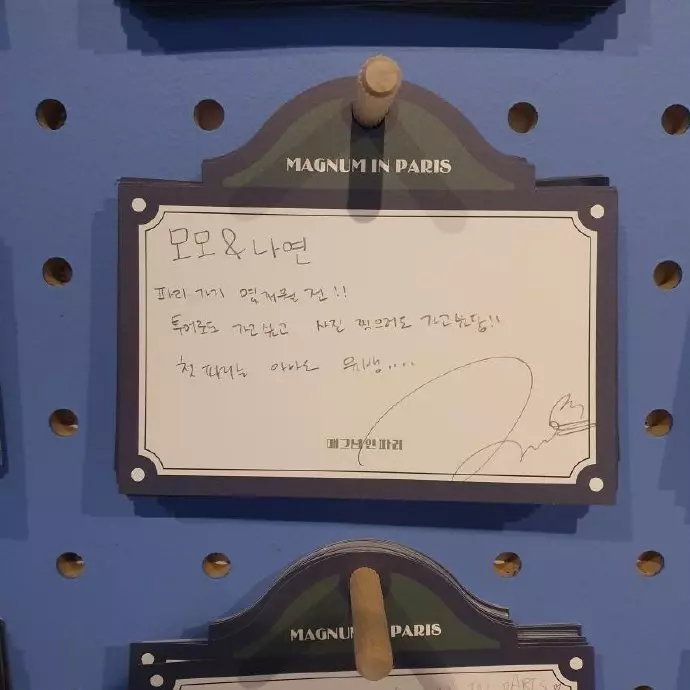 MAGNUM IN PARIS
모모 & 나연
파리 가기 몇개월 전!!
투어로도 가고싶고 사진 찍으러도 가고싶답!!
첫 파리는 아마도 뮤뱅....
매그넘 인 파리
MAGNUM IN PARIS
PARIS